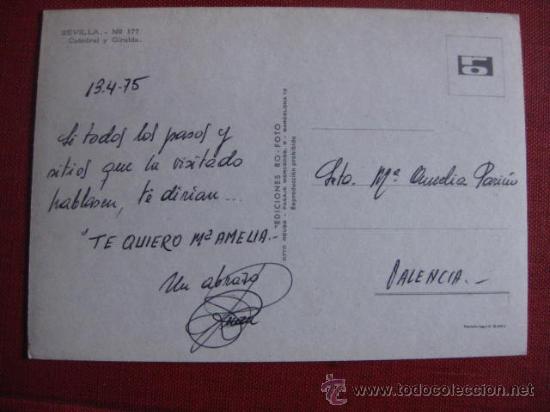 SEVILLA. - Nº 177
Catedral y Giralda.
13-4-75
Si todos los pasos y
sitios que he visitado
hablasen, te dirian...
"TE QUIERO Mª AMELIA.-
Un abrazo
Juan
"EDICIONES RO-FOTO"
BARCELONA
Reproducción prohibida
Srta. Mª Amelia
VALENCIA.-
todocoleccion.net